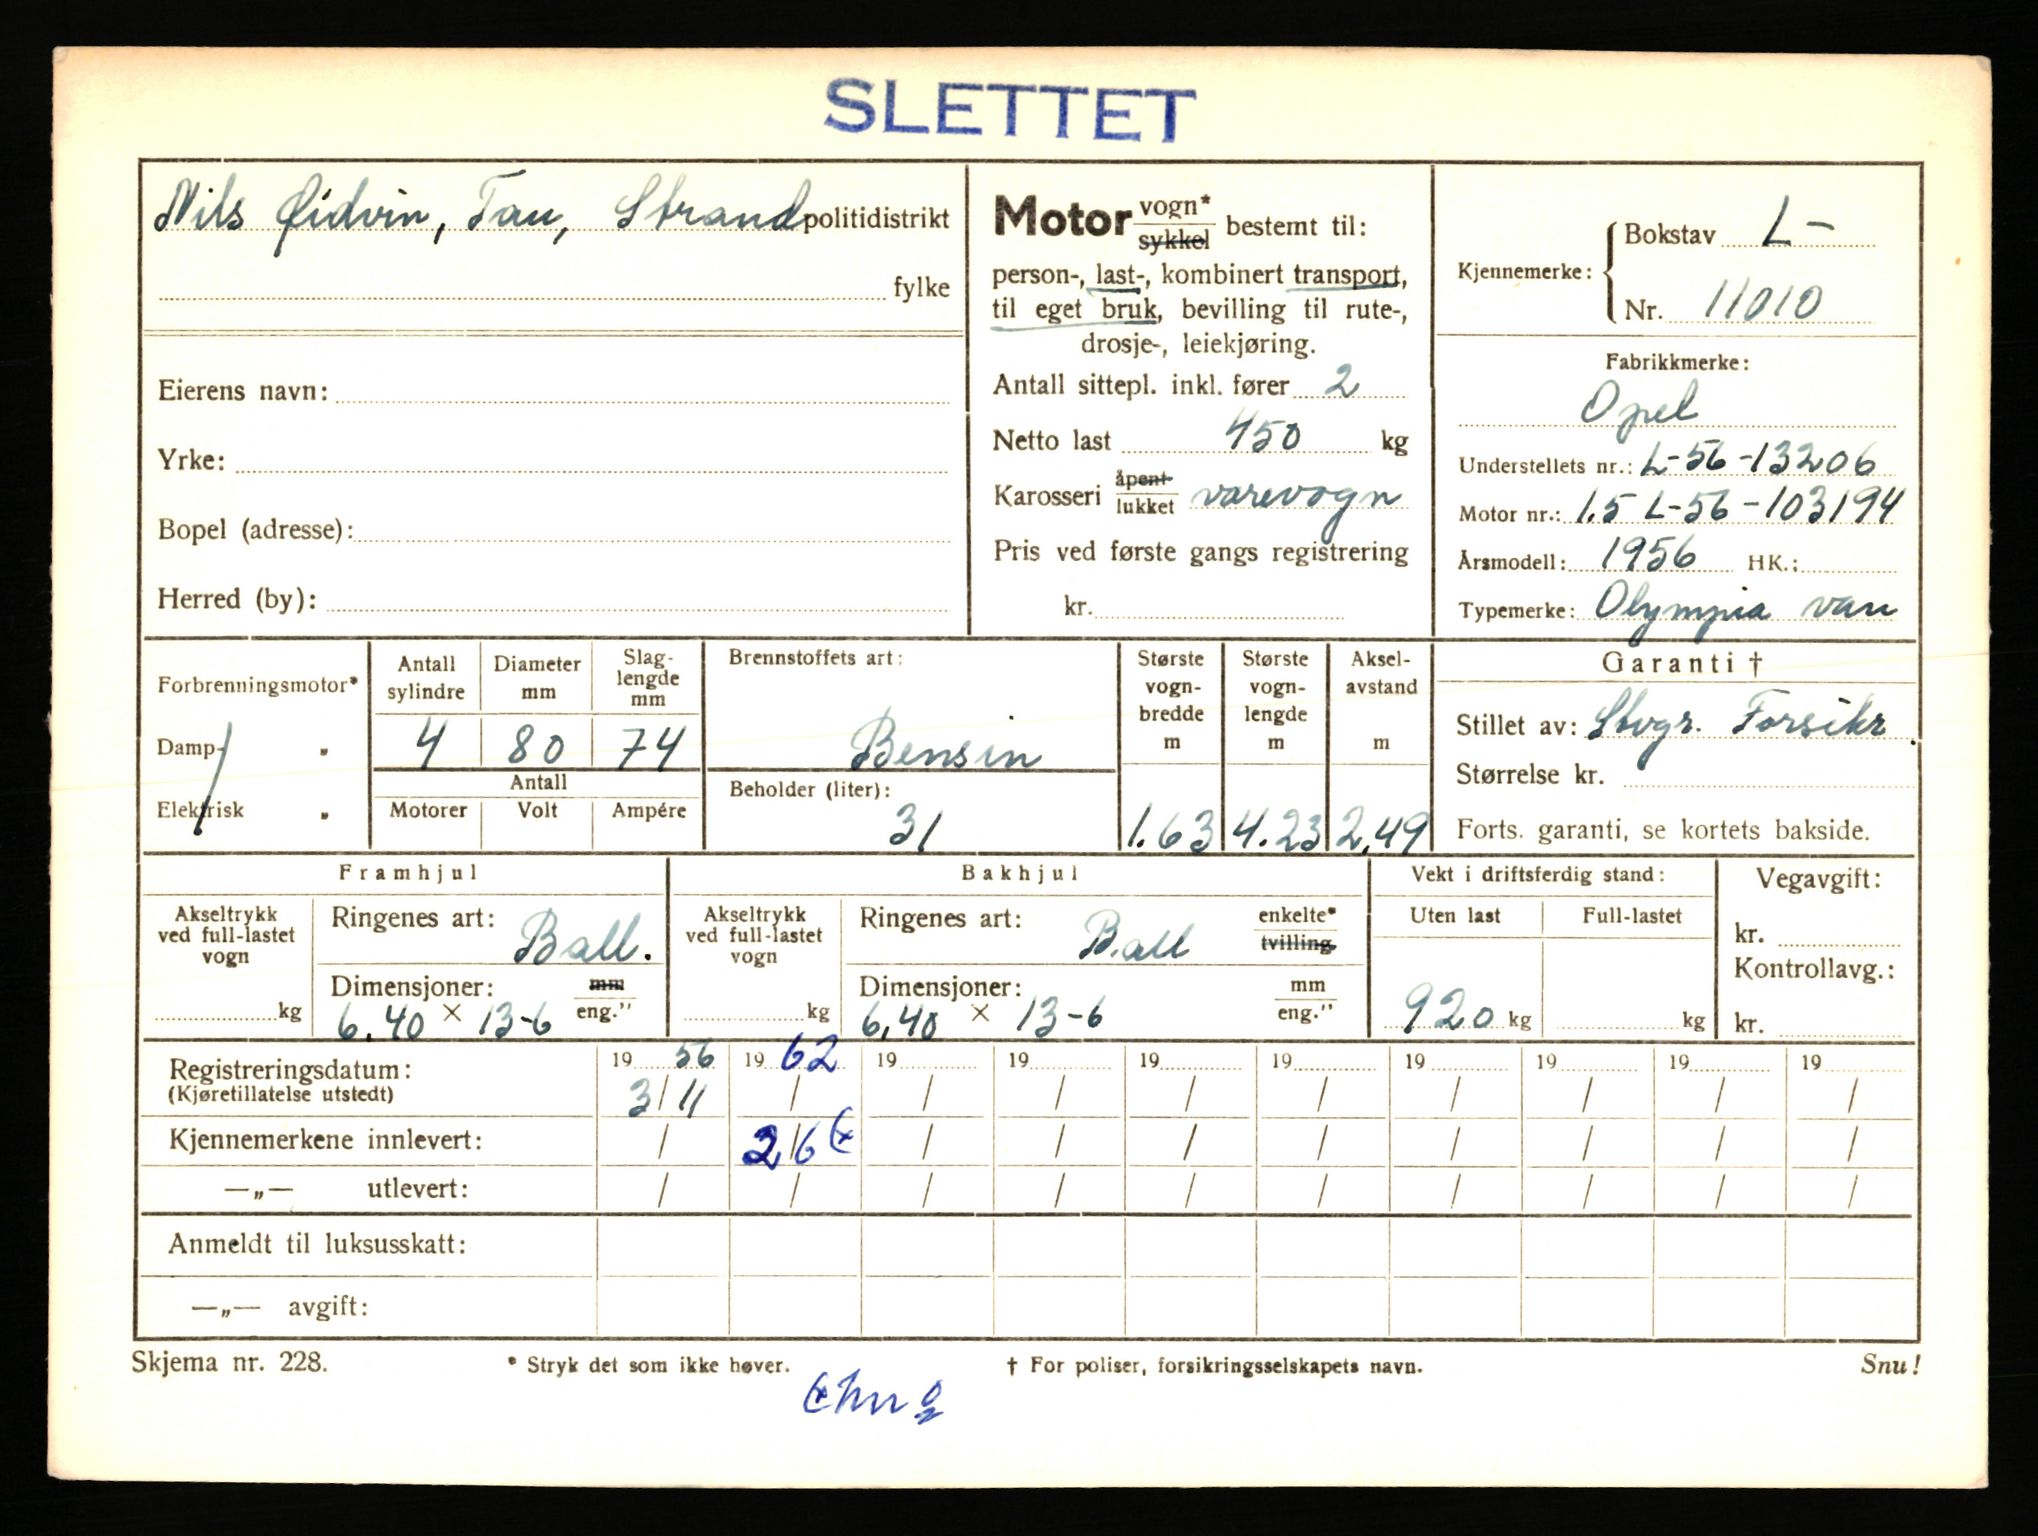 SLETTET
Nils Øidvin, Tau, Strand politidistrikt
fylke
Eierens navn:
Yrke:
Bopel (adresse):
Herred (by):
Motor vogn* sykkel bestemt til:
person-, last-, kombinert transport,
til eget bruk, bevilling til rute-,
drosje-, leiekjøring.
Antall sittepl. inkl. fører 2
Netto last 450 kg
Karosseri åpent lukket varevogn
Pris ved første gangs registrering
kr.
Kjennemerke: Bokstav L-
Nr. 11010
Fabrikkmerke:
Opel
Understellets nr.: L-56-13206
Motor nr.: 1.5 L-56-103194
Årsmodell: 1956 HK.:
Typemerke: Olympia van
Forbrenningsmotor*
Damp- „
Elektrisk „
Antall sylindre 4
Diameter mm 80
Slaglengde mm 74
Antall
Motorer Volt Ampére
Brennstoffets art:
Bensin
Beholder (liter):
31
Største vognbredde m 1.63
Største vognlengde m 4.23
Akselavstand m 2.49
Garanti †
Stillet av: Stvgr. Forsikr.
Størrelse kr.
Forts. garanti, se kortets bakside.
Framhjul
Akseltrykk ved full-lastet vogn
kg
Ringenes art: Ball.
Dimensjoner: mm eng."
6.40 × 13-6
Bakhjul
Akseltrykk ved full-lastet vogn
kg
Ringenes art: Ball enkelte* tvilling
Dimensjoner: mm eng."
6.40 × 13-6
Vekt i driftsferdig stand:
Uten last Full-lastet
920 kg kg
Vegavgift:
kr.
Kontrollavg.:
kr.
Registreringsdatum: 19 56 19 62 19 19 19 19 19 19 19 19
(Kjøretillatelse utstedt) 3/11 / / / / / / / / /
Kjennemerkene innlevert: / 2/6 (x / / / / / / / /
—„— utlevert: / / / / / / / / / /
Anmeldt til luksusskatt:
—„— avgift:
Skjema nr. 228. * Stryk det som ikke høver. † For poliser, forsikringsselskapets navn. Snu!